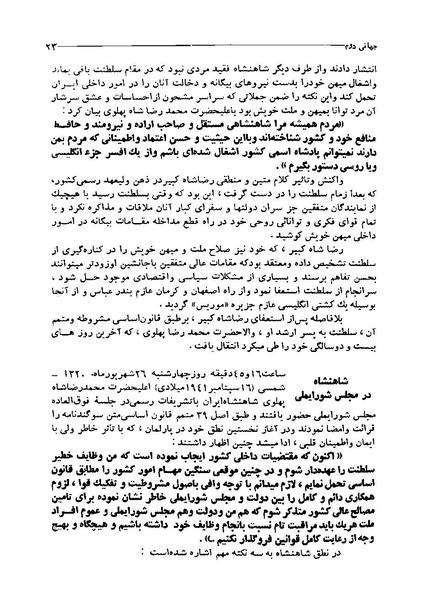 جهانی دوم ۲۳
انتشار دادند واز طرف دیگر شاهنشاه فقید مردی نبود که در مقام سلطنت باقی بماند
واشغال میهن خودرا بدست نیروهای بیگانه و دخالت آنان را در امور داخلی ایران
تحمل کند واین نکته را ضمن جملاتی که سراسر مشحون ازاحساسات و عشق سرشار
آن مرد توانا بمیهن و ملت خویش بود باعلیحضرت محمد رضا شاه پهلوی بیان کرد:
«مردم همیشه مرا شاهنشاهی مستقل و صاحب اراده و نیرومند و حافظ
منافع خود و کشور شناخته‌اند وبااین حیثیت و حسن اعتماد واطمینانی که مردم بمن
دارند نمیتوانم پادشاه اسمی کشور اشغال شده‌ای باشم واز یک افسر جزء انگلیسی
ویا روسی دستور بگیرم».
واکنش وتاثیر کلام متین و منطقی رضاشاه کبیردر ذهن ولیعهد رسمی‌کشور،
که بعدا زمام سلطنت را در دست گرفت، این بود که وقتی بسلطنت رسید با هیچیک
از نمایندگان متفقین جز سران دولتها و سفرای کبار آنان ملاقات و مذاکره نکرد و با
تمام قوای فکری و توانائی روحی خود در راه قطع مداخله مقامات بیگانه در امور
داخلی میهن خویش کوشید.
رضا شاه کبیر، که خود نیز صلاح ملت و میهن خویش را در کناره‌گیری از
سلطنت تشخیص داده ومعتقد بودکه مقامات عالی متفقین باجانشین اوزودتر میتوانند
بحسن تفاهم برسند و بسیاری از مشکلات سیاسی واقتصادی موجود حل شود،
سرانجام از سلطنت استعفا نمود واز راه اصفهان و کرمان عازم بندر عباس و از آنجا
بوسیله یک کشتی انگلیسی عازم جزیره «موریس» گردید.
بلافاصله پس‌از استعفای رضاشاه کبیر، برطبق قانون‌اساسی مشروطه ومتمم
آن، سلطنت به پسر ارشد او، والاحضرت محمد رضا پهلوی، که آخرین روز های
بیست و دوسالگی خود را طی میکرد انتقال یافت.
شاهنشاه
در مجلس شورایملی
ساعت۱۶و۴۵دقیقه روزچهارشنبه ۲۶شهریورماه، ۱۳۲۰ ـ
شمسی (۱۶سپتامبر۱۹۴۱میلادی) اعلیحضرت محمدرضاشاه
پهلوی شاهنشاه‌ایران باتشریفات رسمی‌در جلسه فوق‌العاده
مجلس شورایملی حضور یافتند و طبق اصل ۳۹ متمم قانون اساسی‌متن سوگندنامه را
قرائت وامضا نمودند ودر آغاز نخستین نطق خود در پارلمان، که با تاثر خاطر ولی با
ایمان واطمینان قلبی، ادا میشد چنین اظهار داشتند:
«اکنون که مقتضیات داخلی کشور ایجاب نموده است که من وظایف خطیر
سلطنت را عهده‌دار شوم و در چنین موقعی سنگین مهـام امور کشور را مطابق قانون
اساسی تحمل نمایم، لازم میدانم با توجه وافی باصول مشروطیت و تفکیک قوا، لزوم
همکاری دائم و کامل را بین دولت و مجلس شورایملی خاطر نشان نموده برای تامین
مصالح‌عالی کشور متذکر شوم که هم من ودولت وهم مجلس شورایملی و عموم افـراد
ملت هریک باید مراقبت تام نسبت بانجام وظایف خود داشته باشیم و هیچگاه و بهیچ
وجه از رعایت کامل قوانین فروگذار نکنیم ..».
در نطق شاهنشاه به سه نکته مهم اشاره شده‌است: